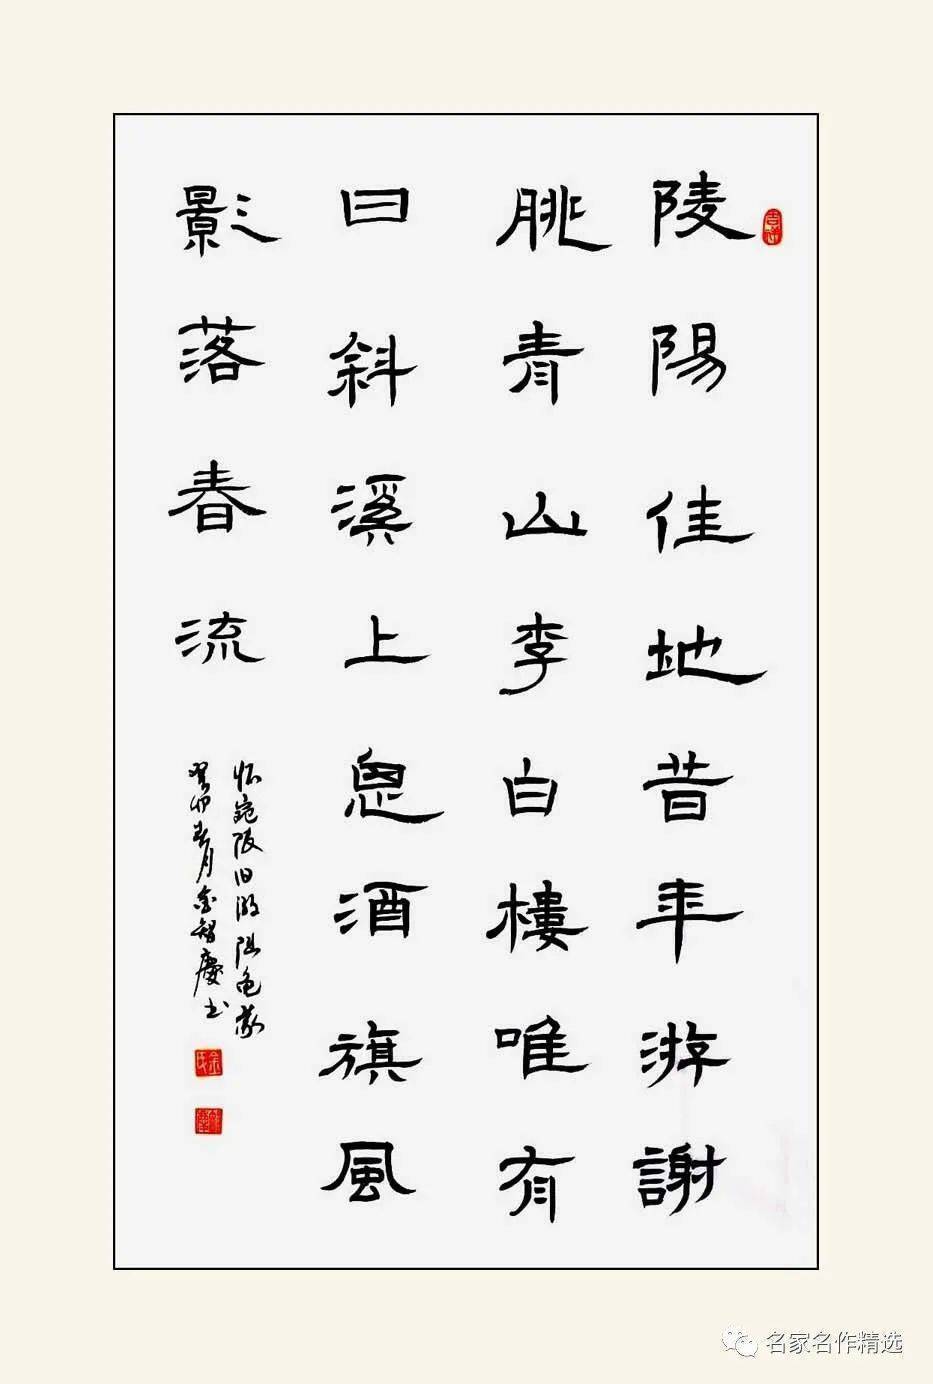 陵陽佳地昔年游謝
朓青山李白樓唯有
日斜溪上思酒旗風
影落春流
怀宛陵旧游陆龟蒙
癸卯春月金智慶书
吉祥
金氏
名家名作精选